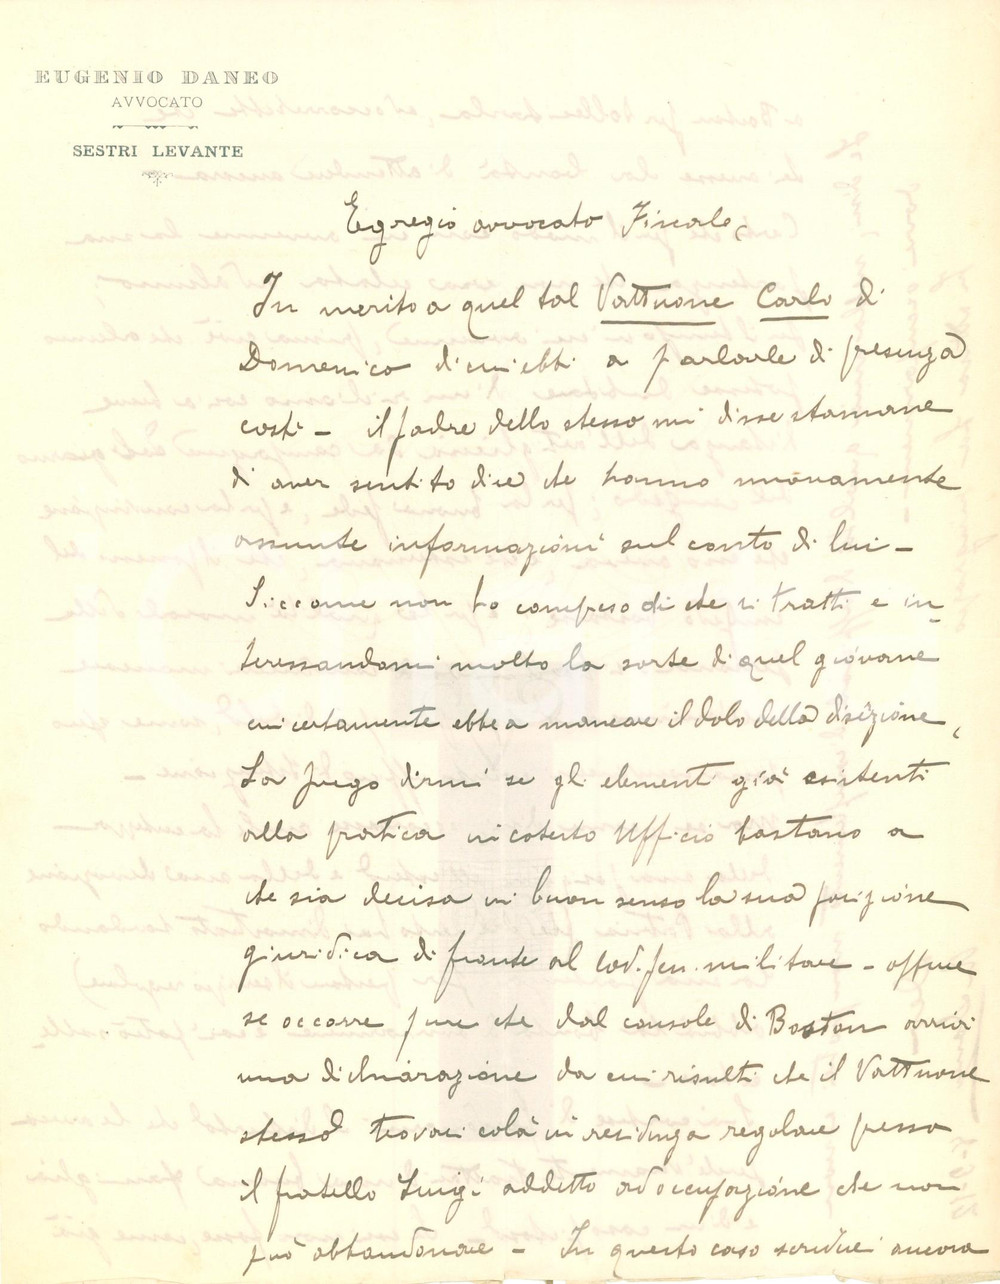 EUGENIO DANEO
AVVOCATO
SESTRI LEVANTE
Egregio avvocato Fiscale,
In merito a quel tal Vattuone Carlo di
Domenico di cui ebbi a parlarle di presenza
costì – il padre dello stesso mi disse stamane
di aver sentito dire che hanno nuovamente
assunte informazioni sul conto di lui –
Siccome non ho compreso di che si tratti e in-
teressandomi molto la sorte di quel giovane
cui certamente ebbe a mancare il dolo della diserzione,
La prego dirmi se gli elementi già esistenti
alla pratica in codesto Ufficio bastano a
che sia decisa in buon senso la sua posizione
giuridica di fronte al Cod. pen. militare – oppure
se occorre pure che dal console di Boston arrivi
una dichiarazione da cui risulti che il Vattuone
stesso trovasi colà in residenza regolare presso
il fratello Luigi addetto ad occupazione che non
può abbandonare – In questo caso scriverei ancora